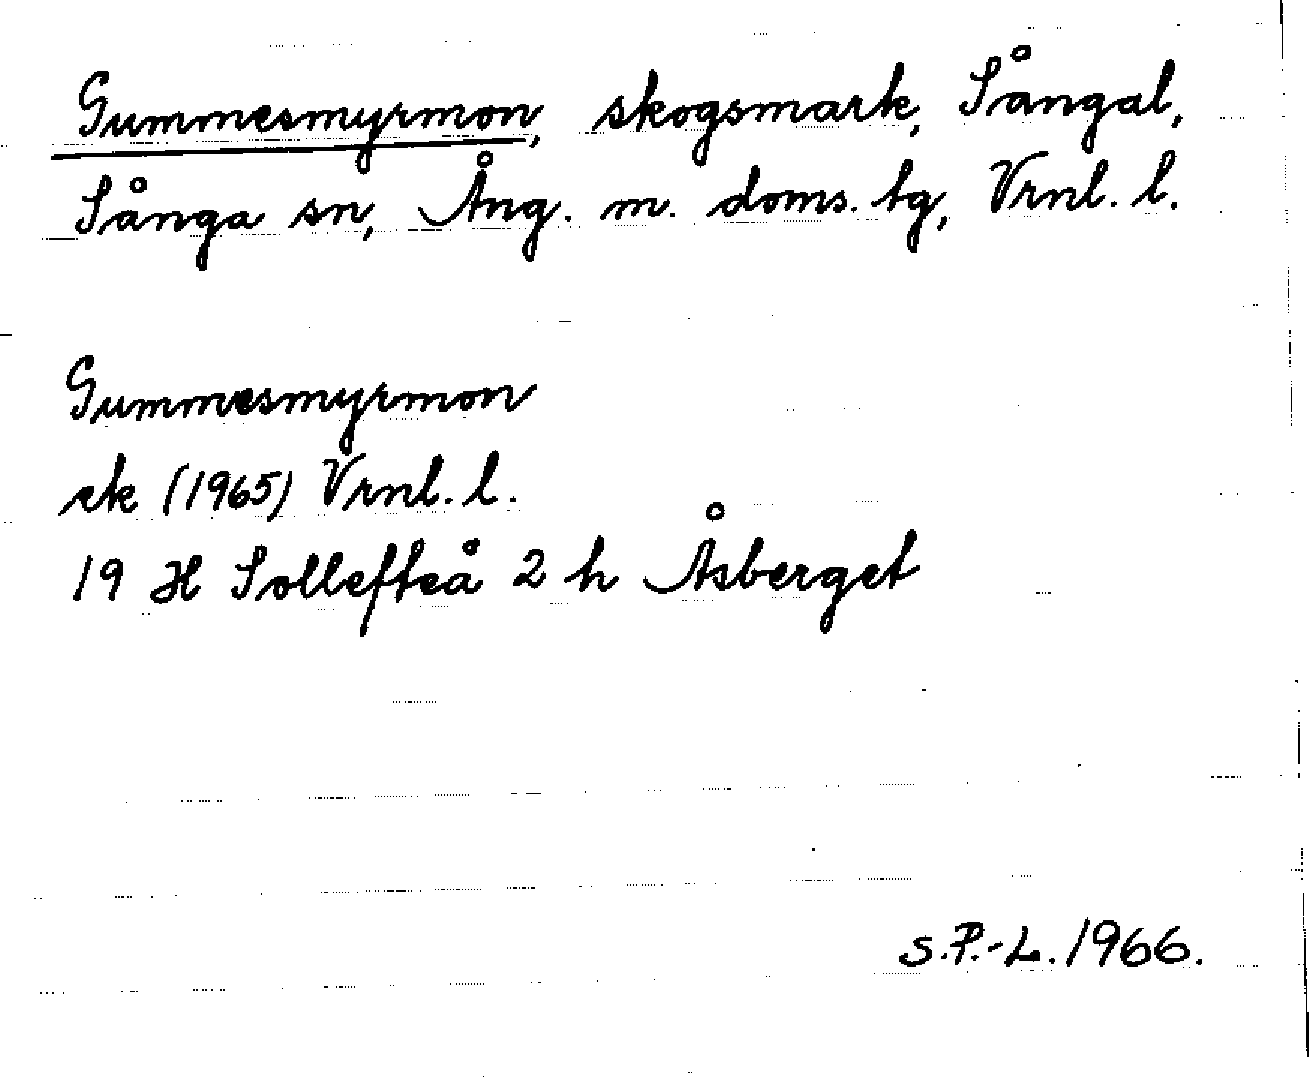 Gummesmyrmon, skogsmark, Sångal,
Sånga sn, Ång. m. doms. tg, Vrnl. l.
Gummesmyrmon
ek (1965) Vrnl. l.
19 H Sollefteå 2 h Åsberget
S.P.-L. 1966.